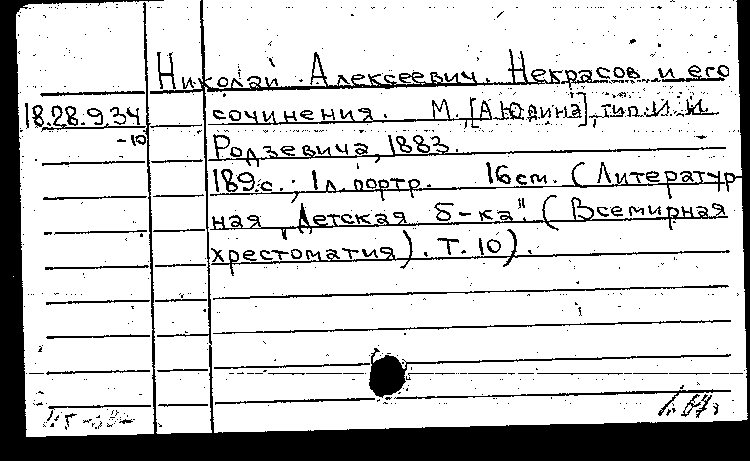 Николай Алексеевич Некрасов и его
18.28.9.34
сочинения. М., [А Юдина], тип. И. И.
-10
Родзевича, 1883.
189 с.; 1 л. портр. 16 см. (Литератур-
ная „Детская б-ка". (Всемирная
хрестоматия). Т. 10).